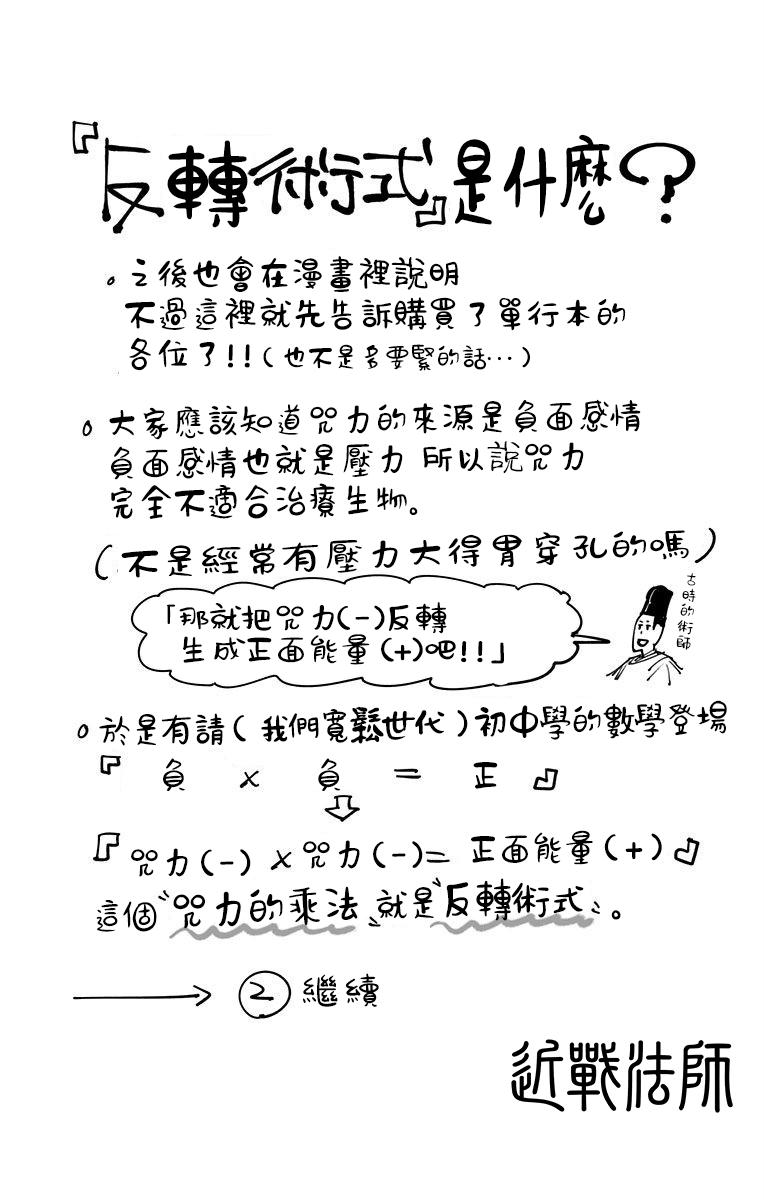 『反轉術式』是什麼？
。之後也會在漫畫裡說明
不過這裡就先告訴購買了單行本的
各位了!!(也不是多要緊的話…)
。大家應該知道咒力的來源是負面感情
負面感情也就是壓力 所以說咒力
完全不適合治療生物。
(不是經常有壓力大得胃穿孔的嗎)
古時的術師
「那就把咒力(-)反轉
生成正面能量(+)吧!!」
。於是有請(我們寬鬆世代)初中學的數學登場
『負 x 負 = 正』
⇩
『咒力(-)x咒力(-)= 正面能量(+)』
這個〝咒力的乘法〞就是〝反轉術式〞。
→ ② 繼續
近戰法師